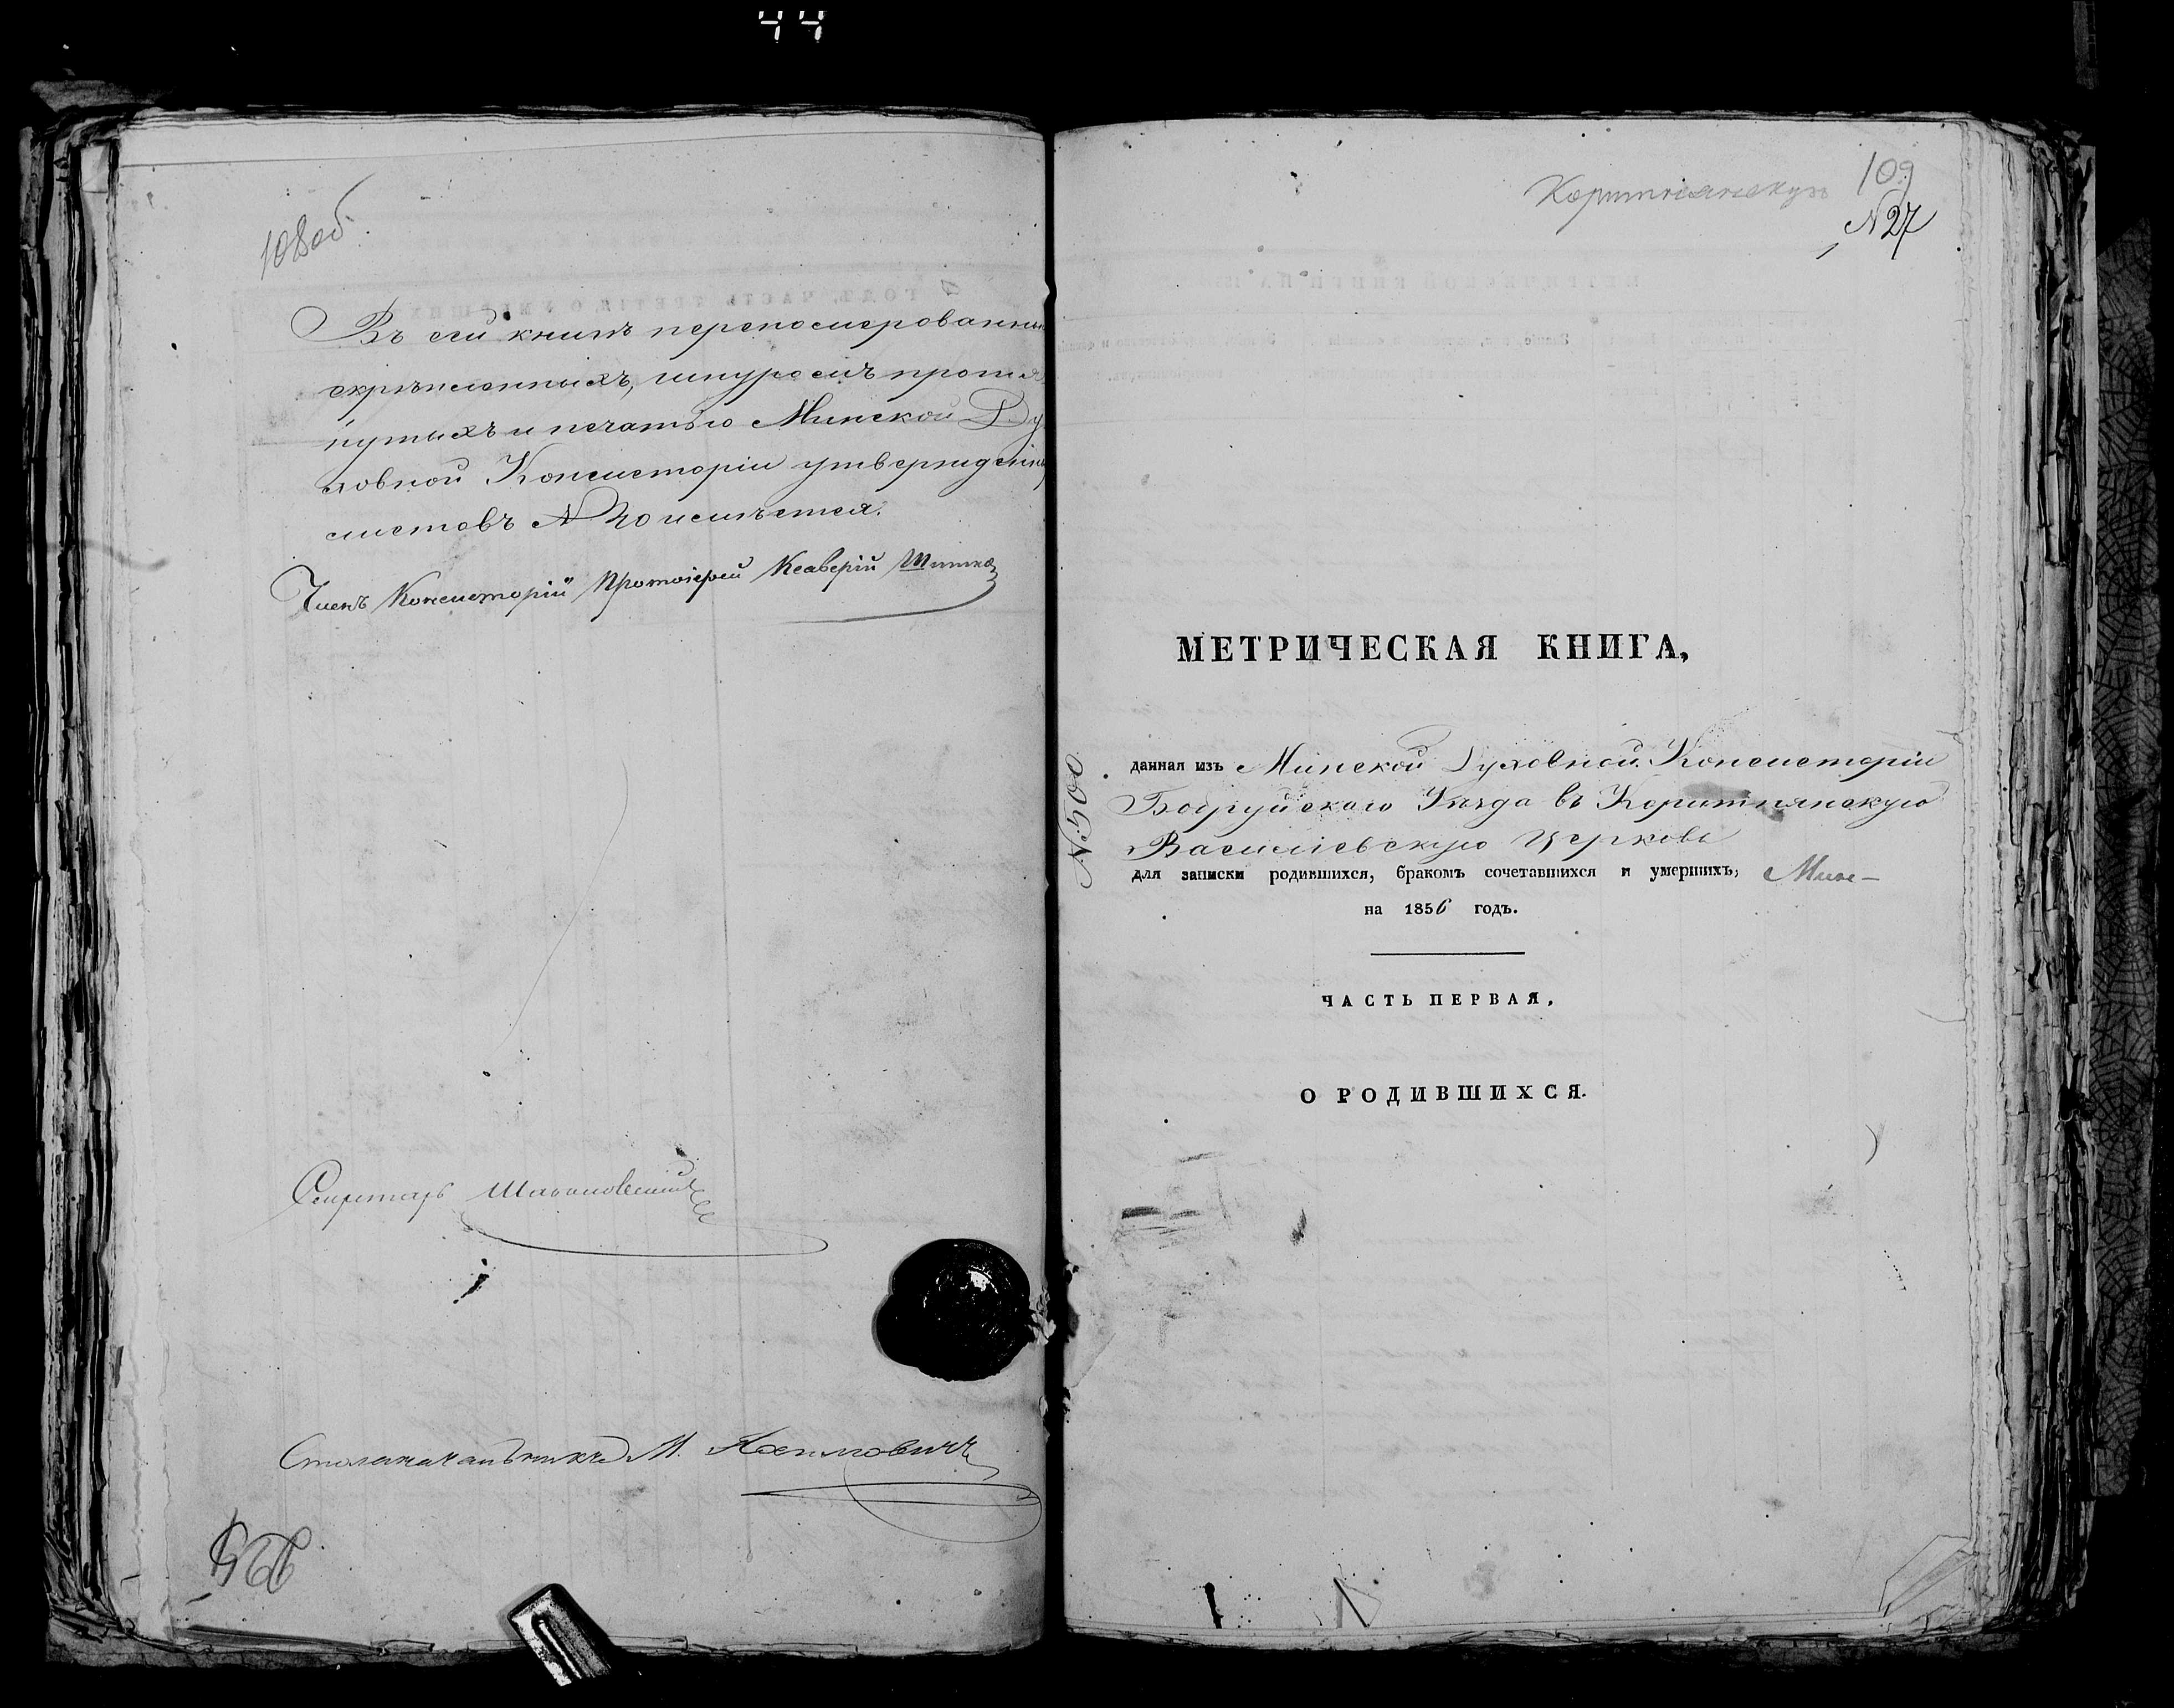 44
108об.
Въ сей книгѣ переномерованны
скрѣпленныхъ, шнуромъ протя
нутыхъ и печатью Минской Ду
ховной Консисторіи утвержден
листовъ № 20 имѣется.
Членъ Консисторіи Протоіерей Ксаверій
Секретарь
Столоначальникъ М. Яхимовичъ
109
Коритнянскую
№ 27
МЕТРИЧЕСКАЯ КНИГА,
№ 500
данная изъ Минской Духовной Консисторіи
Бобруйскаго Уѣзда въ Коритнянскую
Василіевскую Церковь
для записки родившихся, бракомъ сочетавшихся и умершихъ,
на 1856 годъ.
ЧАСТЬ ПЕРВАЯ,
О РОДИВШИХСЯ.